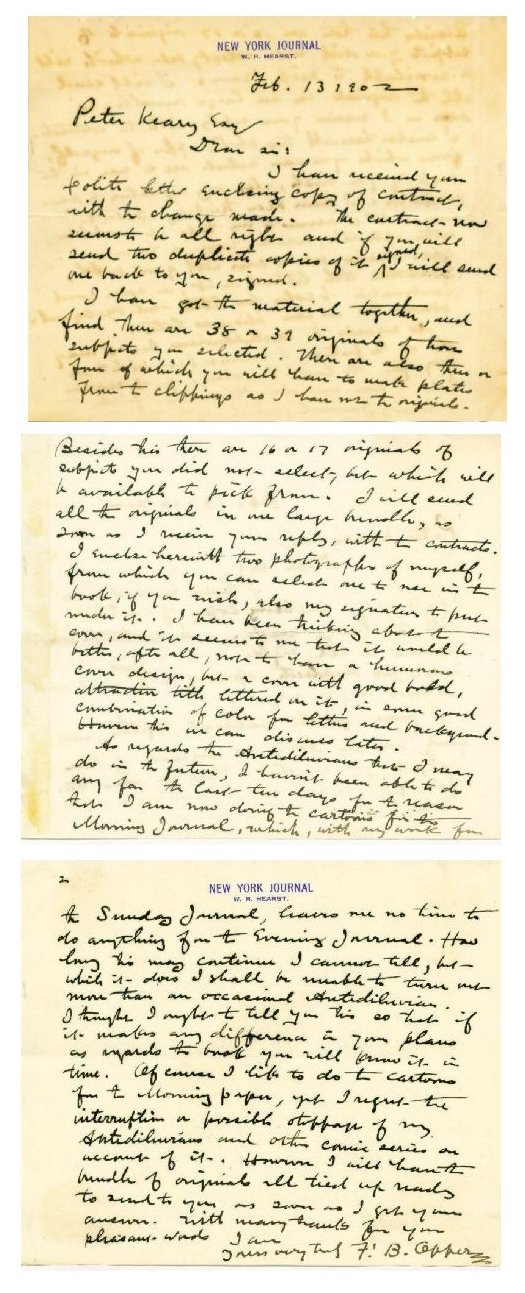 NEW YORK JOURNAL
W. R. HEARST.
Feb. 13 1902
Peter Keary Esq
Dear sir:
I have received your
polite letter enclosing copy of contract,
with the change made. The contract now
seems to be all right and if you will
send two duplicate copies of it signed, I will send
one back to you, signed.
I have got the material together, and
find there are 38 or 39 originals of those
subjects you selected. There are also three or
four of which you will have to make plates
from the clippings as I have not the originals.
Besides this there are 16 or 17 originals of
subjects you did not select, but which will
be available to pick from. I will send
all the originals in one large bundle, as
soon as I receive your reply, with the contracts.
I enclose herewith two photographs of myself,
from which you can select one to use in the
book, if you wish, also my signature to put
under it. I have been thinking about the
cover, and it seems to me that it would be
better, after all, not to have a humorous
cover design, but a cover with good bold,
attractive title lettered on it, in some good
combination of color for letters and background.
However this we can discuss later.
As regards the Antediluvians that I may
do in the future, I haven't been able to do
any for the last ten days for the reason
that I am now doing the cartoons for the
Morning Journal, which, with my work for
2
NEW YORK JOURNAL
W. R. HEARST.
the Sunday Journal, leaves me no time to
do anything for the Evening Journal. How
long this may continue I cannot tell, but
while it does I shall be unable to turn out
more than an occasional Antediluvian.
I thought I ought to tell you this so that if
it makes any difference in your plans
as regards the book you will know it in
time. Of course I like to do the cartoons
for the Morning paper, yet I regret the
interruption or possible stoppage of my
Antediluvians and other comic series on
account of it. However I will have the
bundle of originals all tied up ready
to send to you as soon as I get your
answer. With many thanks for your
pleasant words I am
Yours very truly F. B. Opper